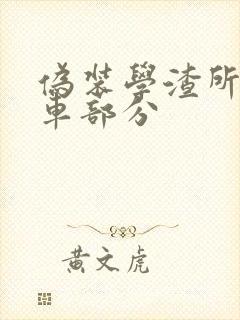 偽裝學渣所
車部分
黃文虎